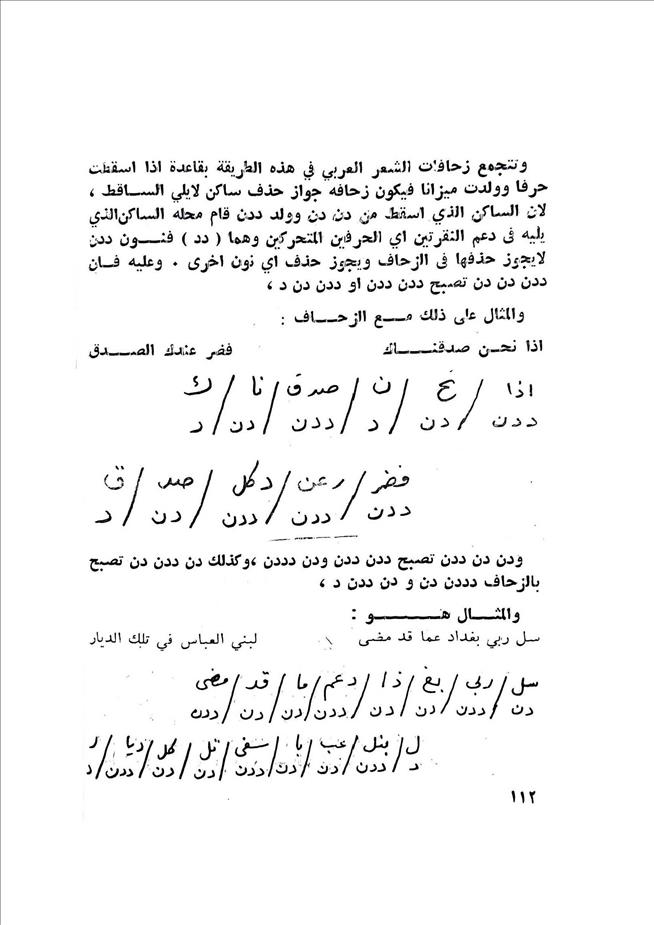 وتتجمع زحافات الشعر العربي في هذه الطريقة بقاعدة اذا اسقطت
حرفا وولدت ميزانا فيكون زحافه جواز حذف ساكن لايلي الساقط ،
لان الساكن الذي اسقط من دن دن وولد ددن قام محله الساكن الذي
يليه في دعم النقرتين اي الحرفين المتحركين وهما ( دد ) فنون ددن
لايجوز حذفها في الزحاف ويجوز حذف اي نون اخرى . وعليه فان
ددن دن دن تصبح ددن ددن او ددن دن د ،
والمثال على ذلك مع الزحاف :
اذا نحن صدقناك فضر عندك الصدق
اذا / نح / ن / صدق / نا / ك
ددن / دن / د / ددن / دن / د
فضر / رعن / دكل / صد / ق
ددن / ددن / ددن / دن / د
ودن دن ددن تصبح ددن ددن ودن دددن ،وكذلك دن ددن دن تصبح
بالزحاف دددن دن و دن ددن د ،
والمثال هو :
سل ربي بغداد عما قد مضى لبني العباس في تلك الديار
سل / ربي / بغ / دا / دعم / ما / قد / مضى
دن / ددن / دن / دن / ددن / دن / دن / ددن
ل / بنل / عب / با / سفي / تل / كل / ديا / ر
د / ددن / دن / دن / ددن / دن / دن / ددن / د
١١٢